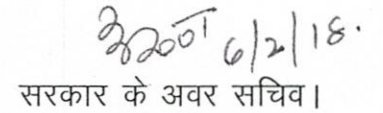 6/2/18.
सरकार के अवर सचिव।